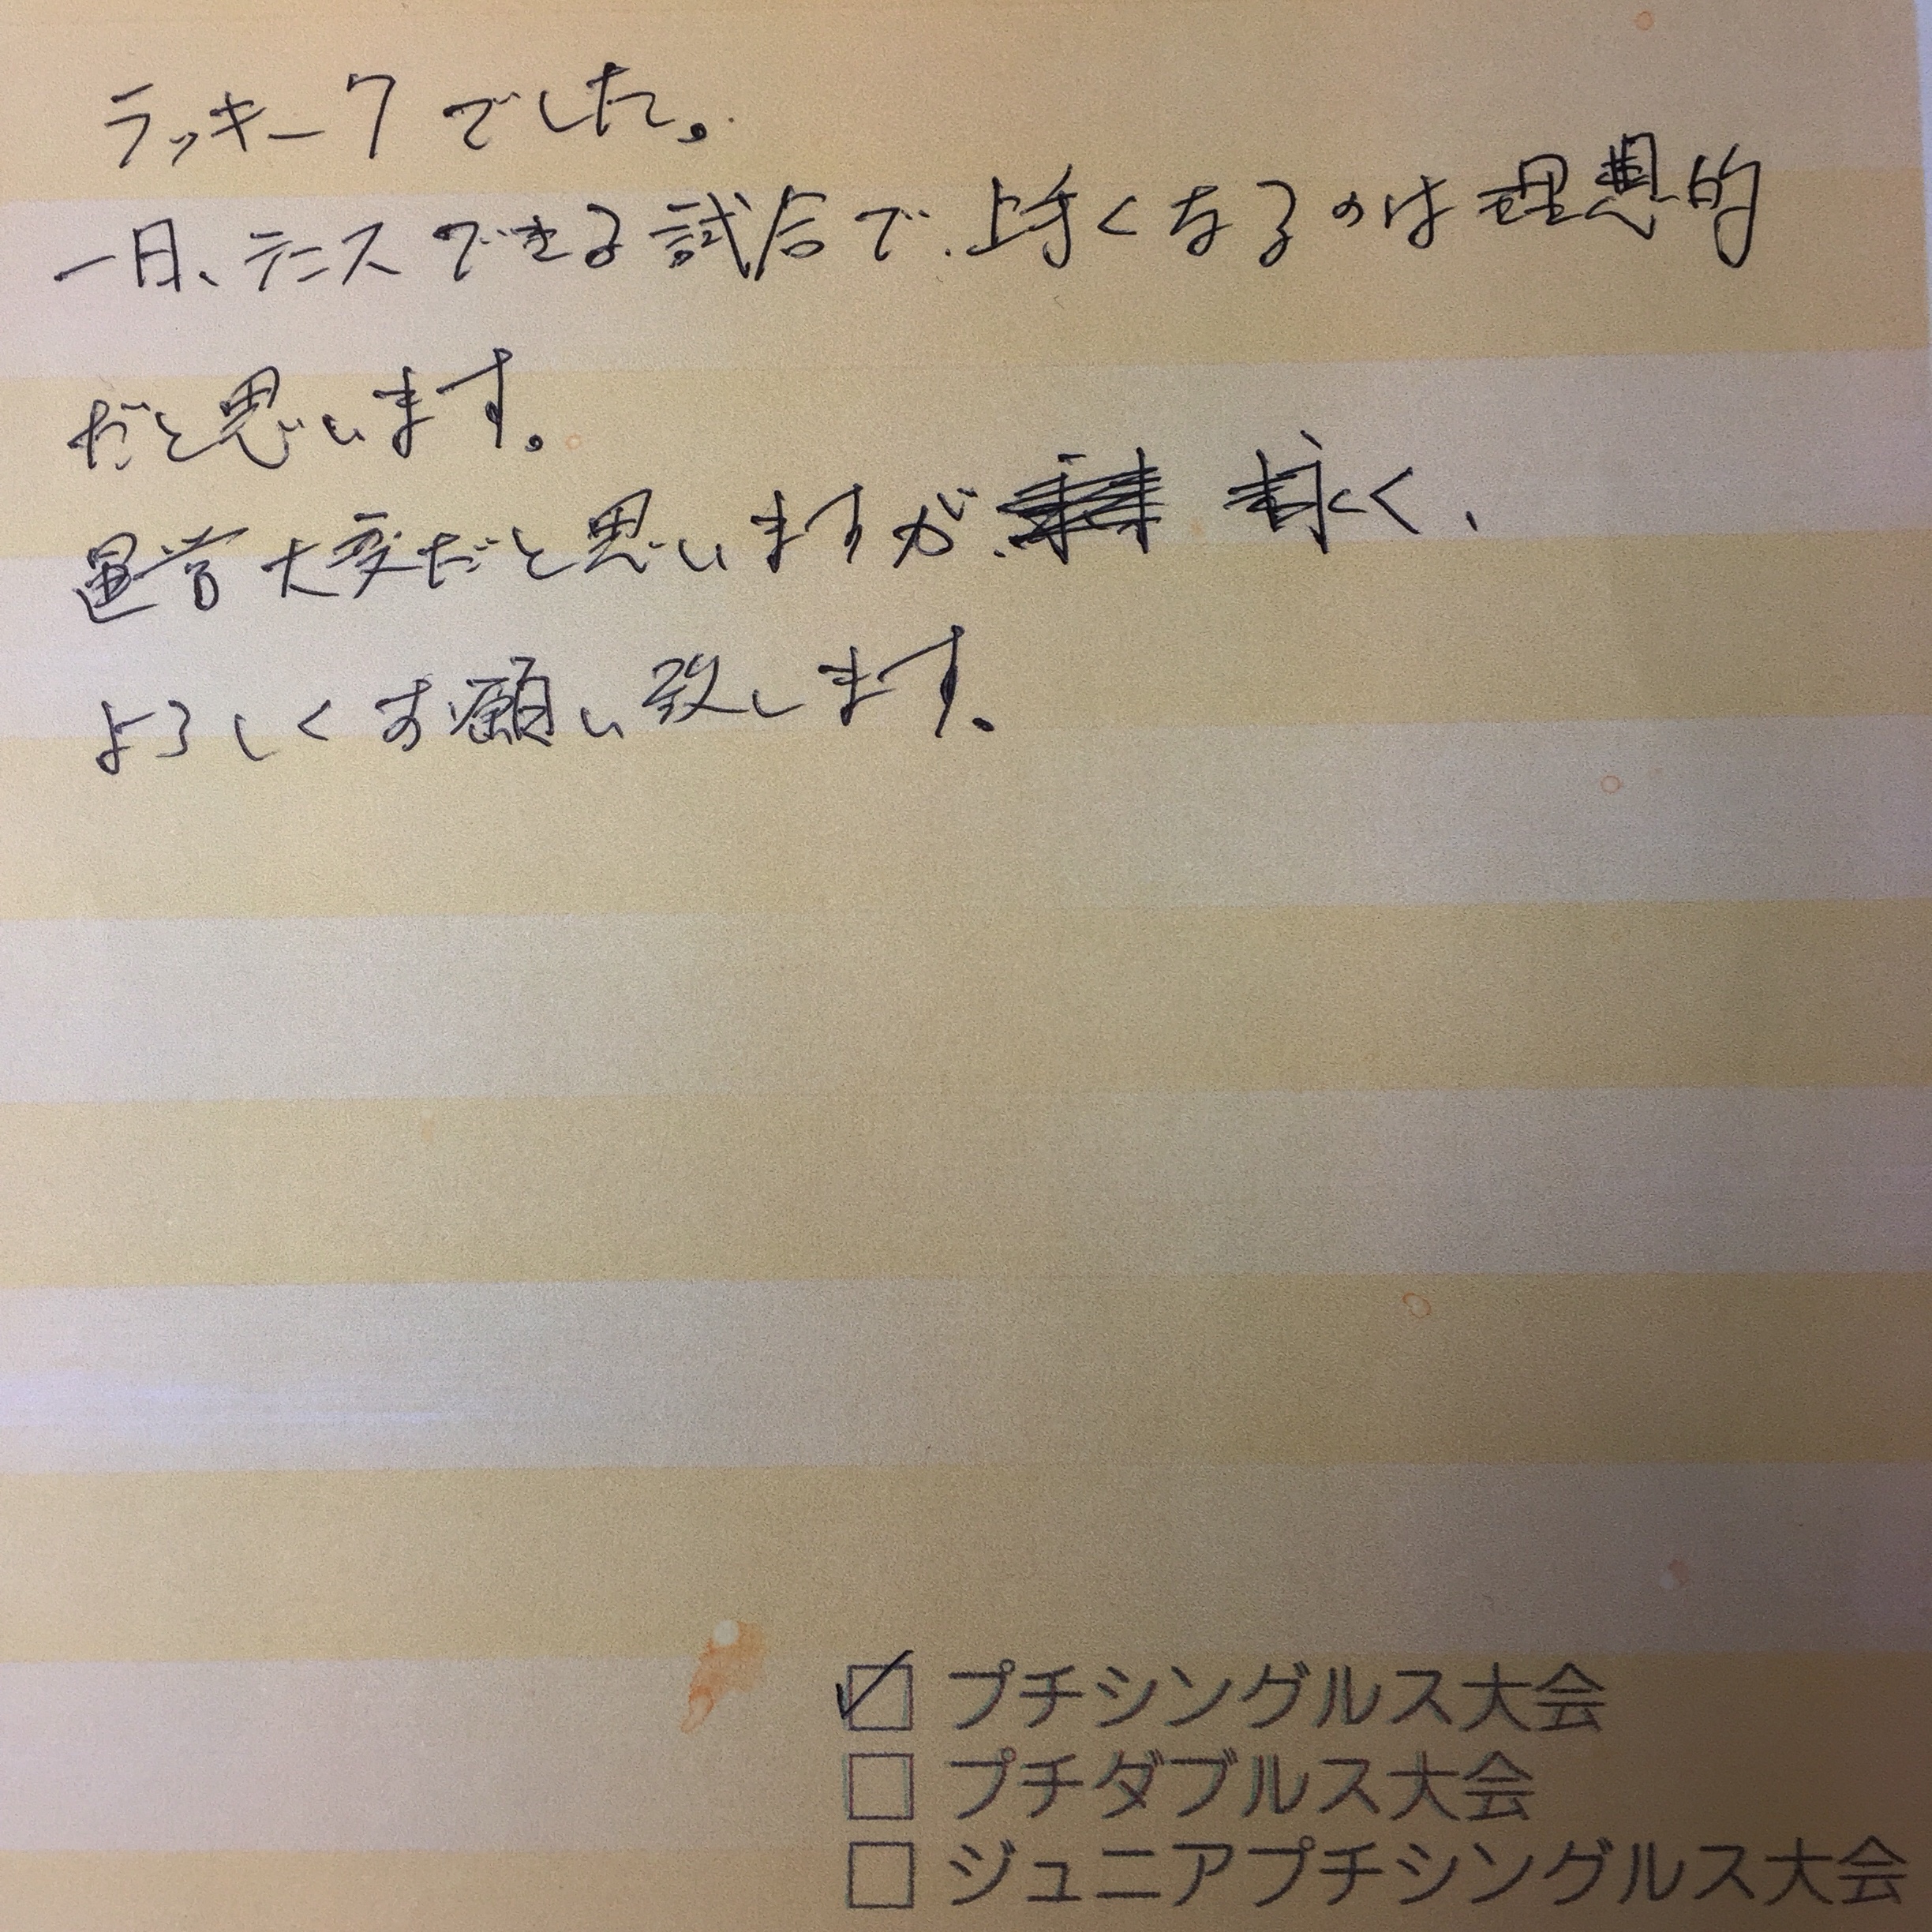 ラッキー7でした。
一日、テニスできる試合で、上手くなるのは理想的
だと思います。
運営大変だと思いますが、永く、
よろしくお願い致します。
☑ プチシングルス大会
☐ プチダブルス大会
☐ ジュニアプチシングルス大会